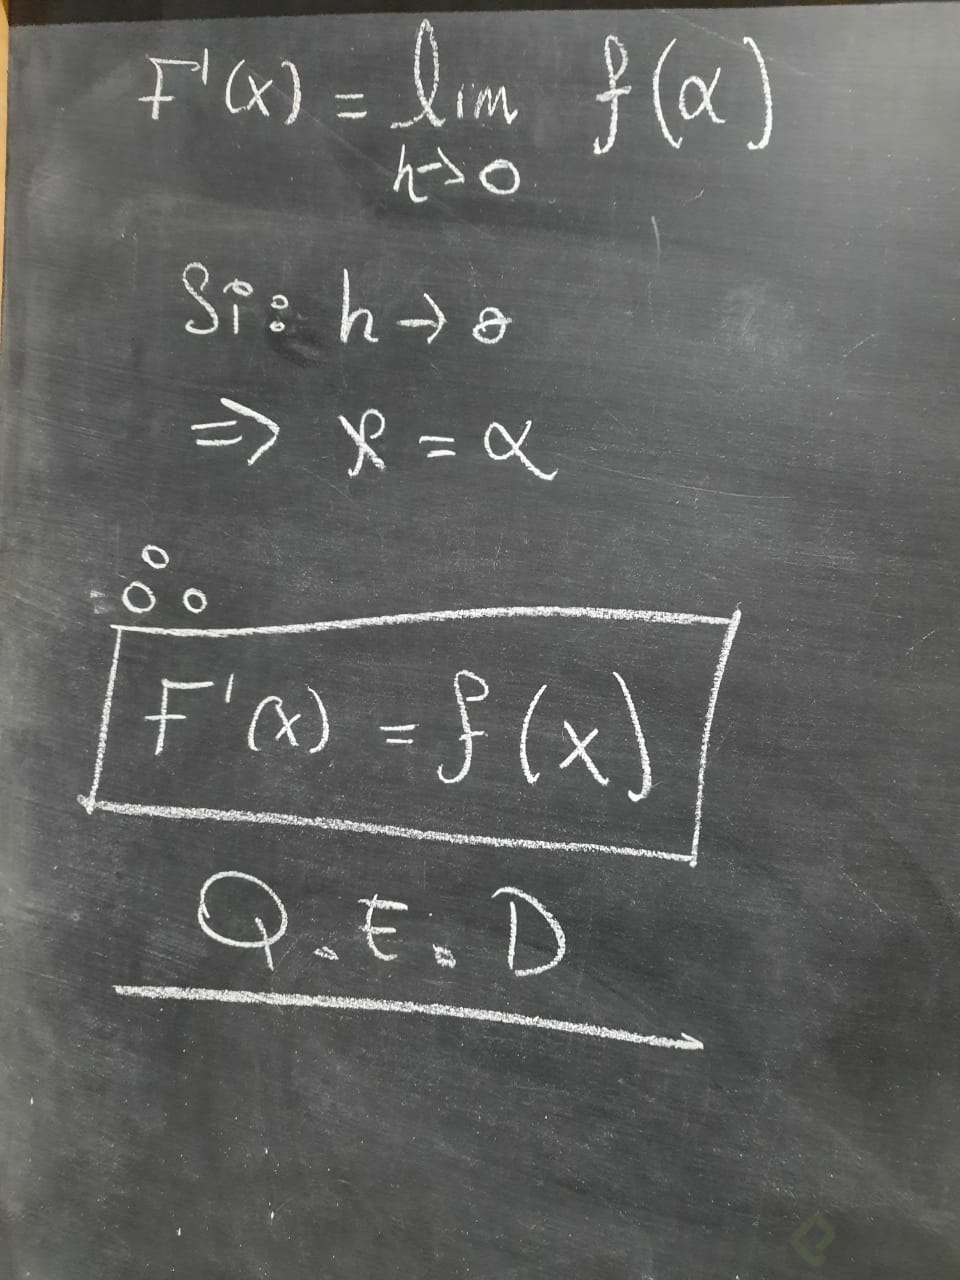 F'(x) = lim f(α)
h→0
Si: h → 0
⇒ x = α
∴
F'(x) = f(x)
Q.E.D